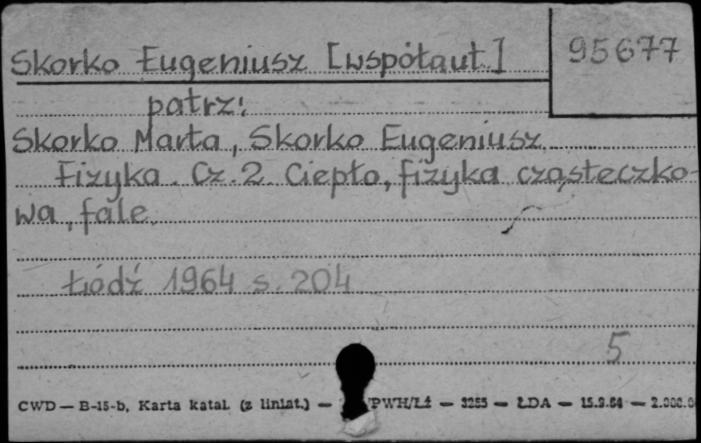 Skorko Eugeniusz [współaut.] 95677
patrz:
Skorko Marta, Skorko Eugeniusz
Fizyka. Cz. 2 Ciepło, fizyka cząsteczko-
wa, fale.
Łódź 1964 s. 204
5
CWD — B-15-b, Karta katal. (z liniat.) — /PWH/Łż — 3255 — ŁDA — 15.9.64 — 2.000.0